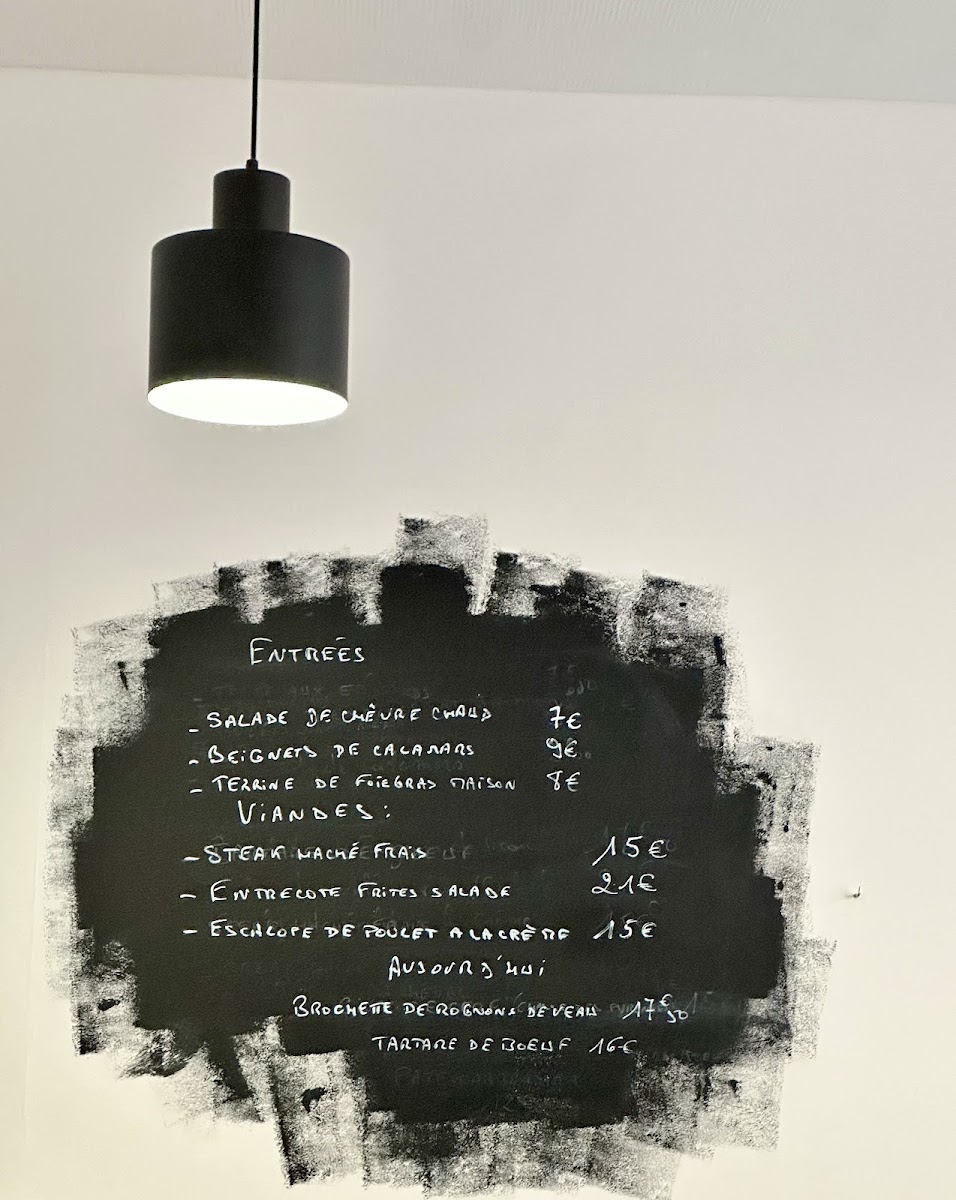 ENTRÉES
- SALADE DE CHÊVRE CHAUD 7€
- BEIGNETS DE CALAMARS 9€
- TERRINE DE FOIEGRAS MAISON 8€
VIANDES:
- STEAK HACHÉ FRAIS 15€
- ENTRECOTE FRITES SALADE 21€
- ESCALOPE DE POULET A LA CRÈME 15€
AUJOURD'HUI
BROCHETTE DE ROGNONS DE VEAU 17€50
TARTARE DE BOEUF 16€